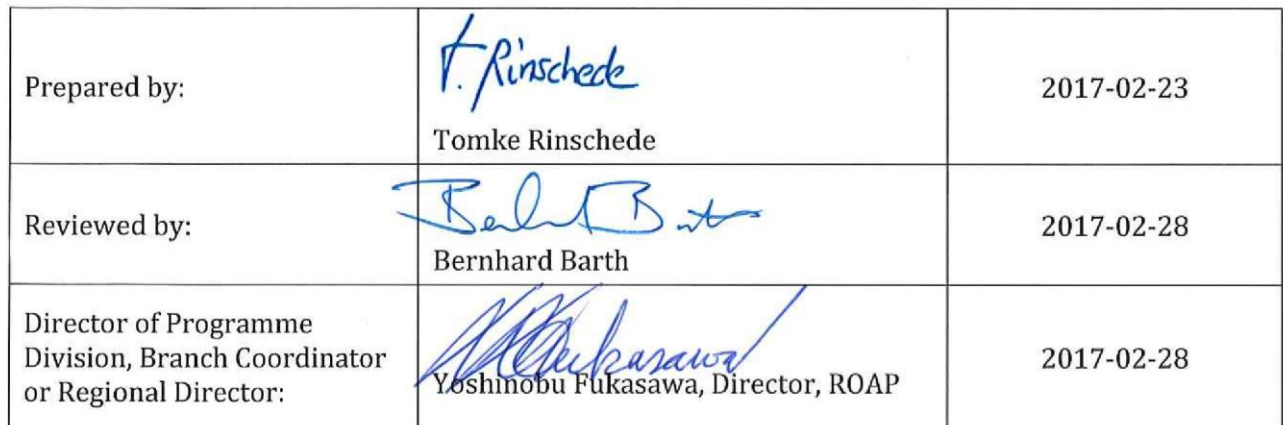 Prepared by:
T. Rinschede
Tomke Rinschede
2017-02-23
Reviewed by:
Bernhard Barth
2017-02-28
Director of Programme
Division, Branch Coordinator
or Regional Director:
Fukasawa
Yoshinobu Fukasawa, Director, ROAP
2017-02-28